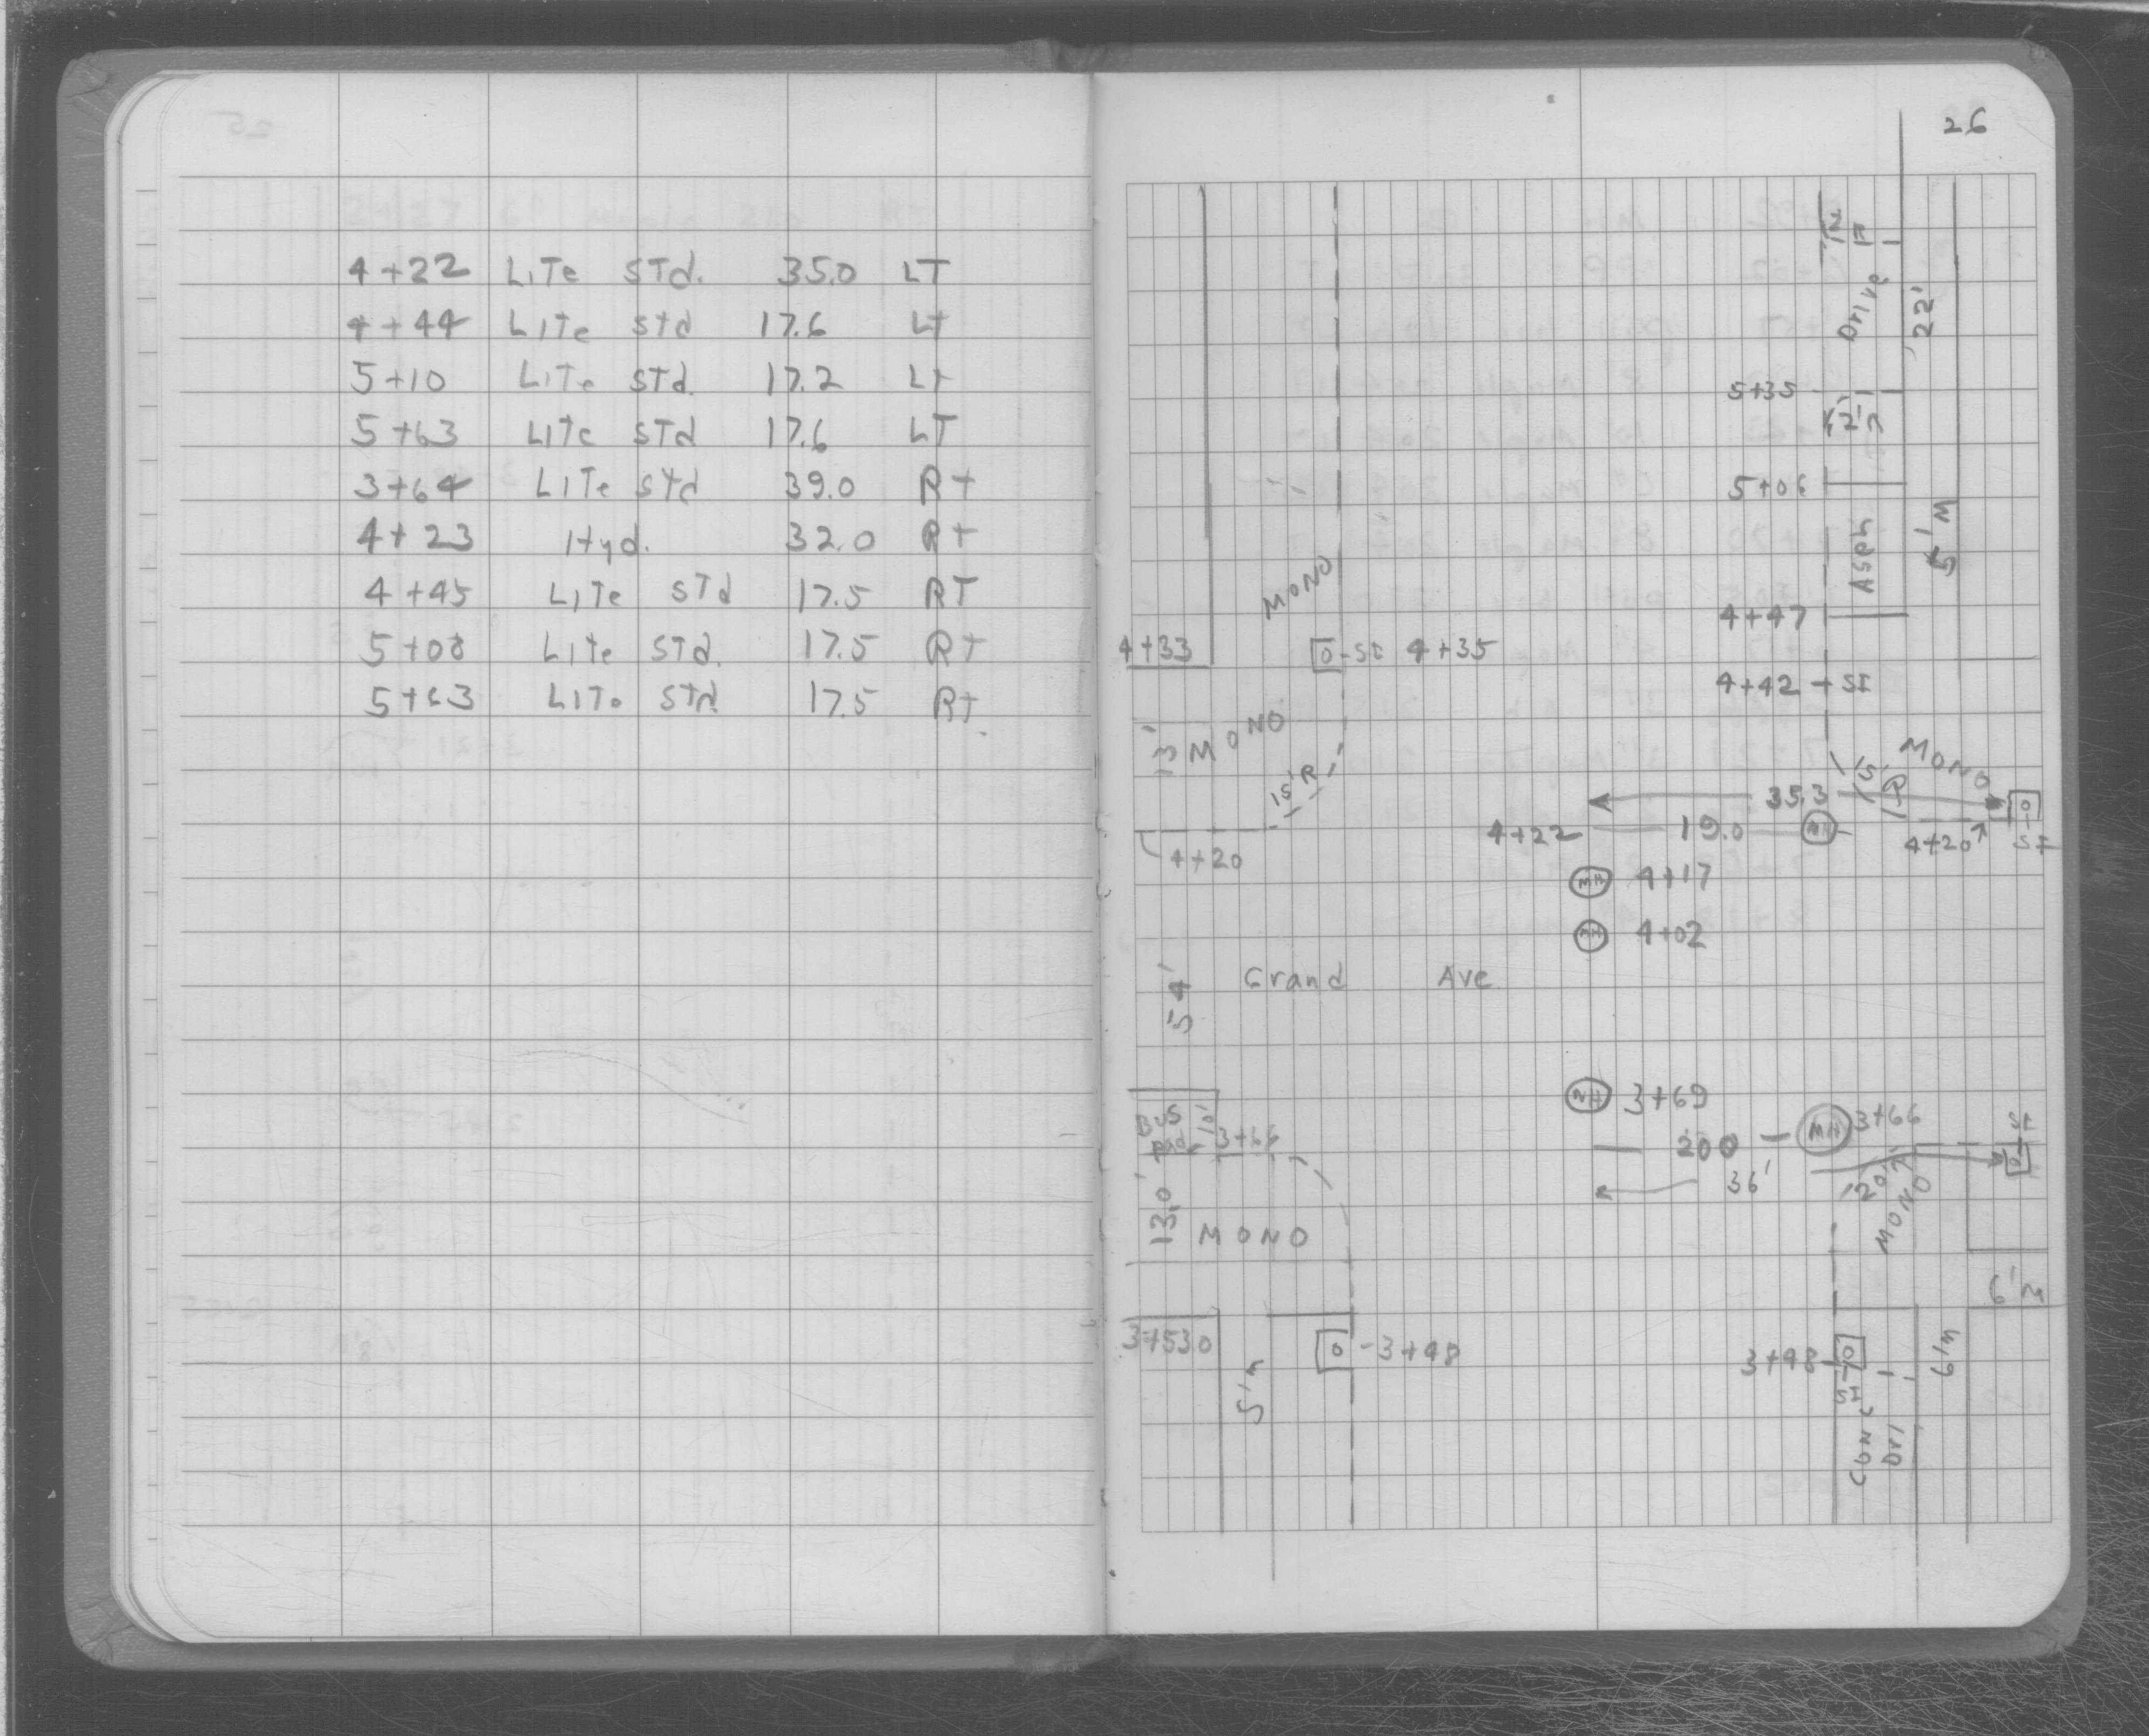 4+22 LiTe STd. 35.0 LT
4+44 LiTe std 17.6 LT
5+10 LiTe STd. 17.2 LT
5+63 LiTe STd 17.6 LT
3+64 LiTe std 39.0 RT
4+23 Hyd. 32.0 RT
4+45 LiTe STd 17.5 RT
5+08 LiTe STd. 17.5 RT
5+63 LiTe STd 17.5 RT
26
Drive
22'
5+35
12'
5+06
Asph
5' M
4+47
MONO
4+33
SI 4+35
4+42 SI
13' MONO
15' R
15' R
MONO
35.3
4+22 19.0 MH
4+20
SI
4+20
MH 4+17
MH 4+02
54'
Grand Ave
MH 3+69
Bus Pad 10'
3+66
200 MH 3+66
SI
36'
20'
MONO
13.0'
MONO
6' M
3+53.0
5' M
3+48
3+48
SI
Conc
Dri
6' M